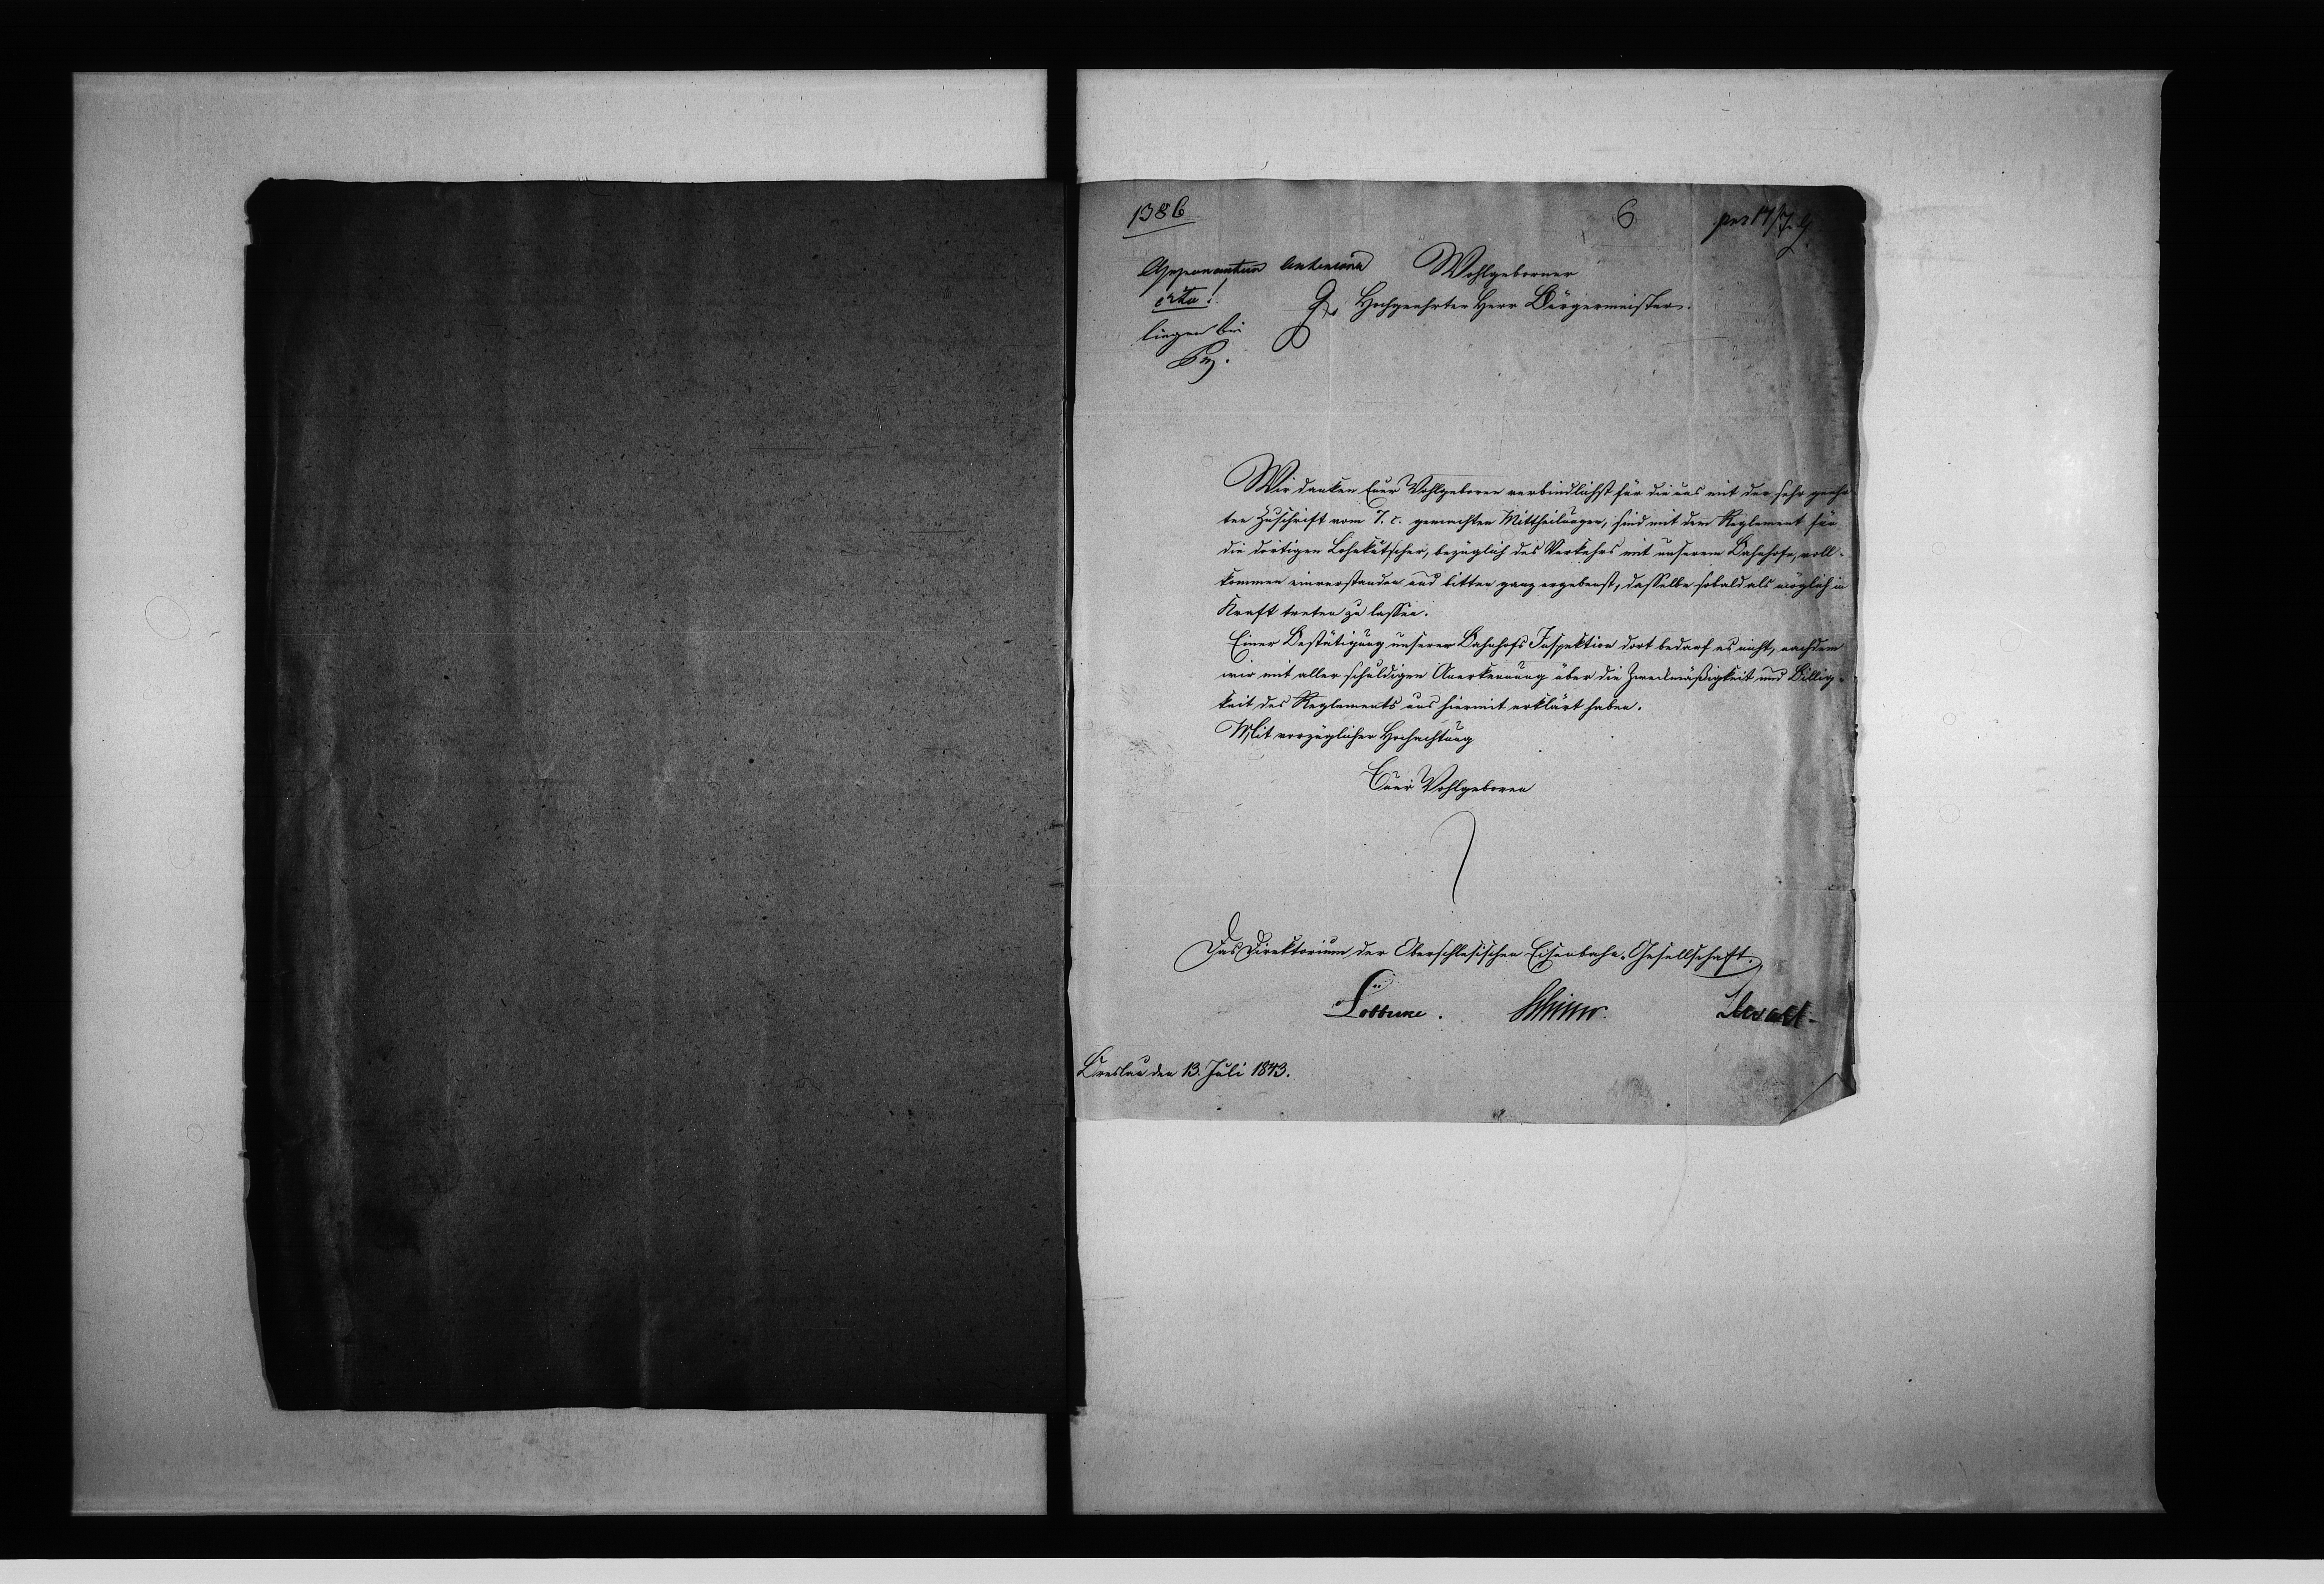 1386
6
Wohlgeborner
Hochgeehrter Herr Bürgermeister.
liegen bei
Wir danken Euer Wohlgeboren verbindlichst für die uns mit der sehr geehr
ten Zuschrift vom 7. c. gemachten Mittheilungen, sind mit dem Reglement für
die dortigen Lohnkutscher, bezüglich des Verkehrs mit unserem Bahnhofe, voll-
kommen einverstanden und bitten ganz ergebenst, dasselbe sobald als möglich in
Kraft treten zu lassen.
Einer Bestätigung unserer Bahnhofs Inspektion dort bedarf es nicht, nachdem
wir mit aller schuldigen Anerkennung über die Zweckmäßigkeit und Billig-
keit des Reglements uns hiermit erklärt haben.
Mit vorzüglicher Hochachtung
Euer Wohlgeboren
Das Direktorium der Oberschlesischen Eisenbahn-Gesellschaft.
Lewald
Breslau den 13. Juli 1843.